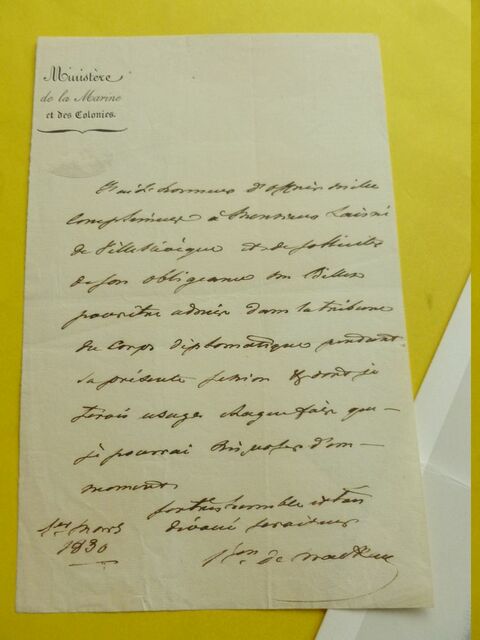 Ministère
de la Marine
et des Colonies.
J'ai l'honneur d'offrir mille
Complimens à Monsieur Lainé
de Villevêque et de solliciter
de son obligeance un Billet
pour être admis dans la tribune
du Corps diplomatique pendant
la présente session & dont je
ferois usage chaque fois que
je pourrai disposer d'un
moment
Son très humble et très
dévoué serviteur
1er mars
1830
Bon de Mackau